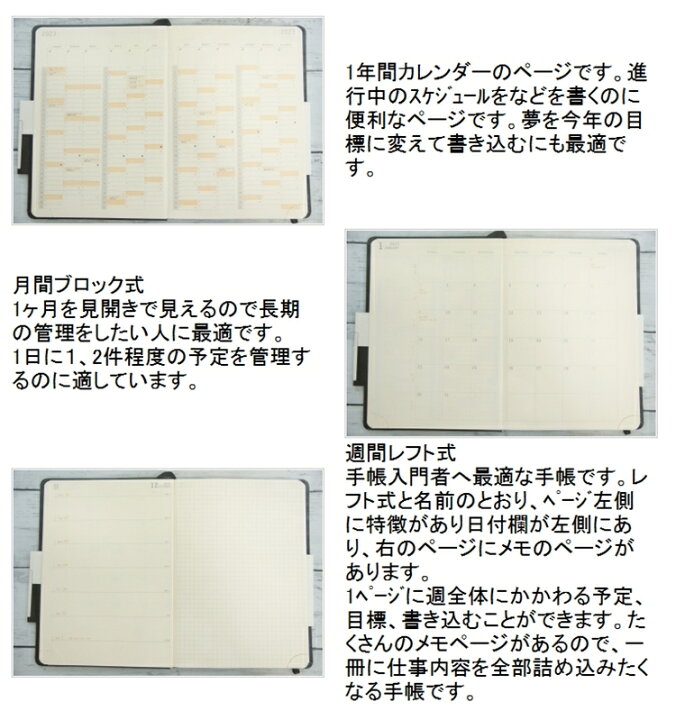 1年間カレンダーのページです。進
行中のｽｹｼﾞｭｰﾙをなどを書くのに
便利なページです。夢を今年の目
標に変えて書き込むにも最適で
す。
月間ブロック式
1ヶ月を見開きで見えるので長期
の管理をしたい人に最適です。
1日に１、2件程度の予定を管理す
るのに適しています。
週間レフト式
手帳入門者へ最適な手帳です。レ
フト式と名前のとおり、ﾍﾟｰｼﾞ左側
に特徴があり日付欄が左側にあ
り、右のページにメモのページが
あります。
1ﾍﾟｰｼﾞに週全体にかかわる予定、
目標、書き込むことができます。た
くさんのメモページがあるので、一
冊に仕事内容を全部詰め込みたく
なる手帳です。